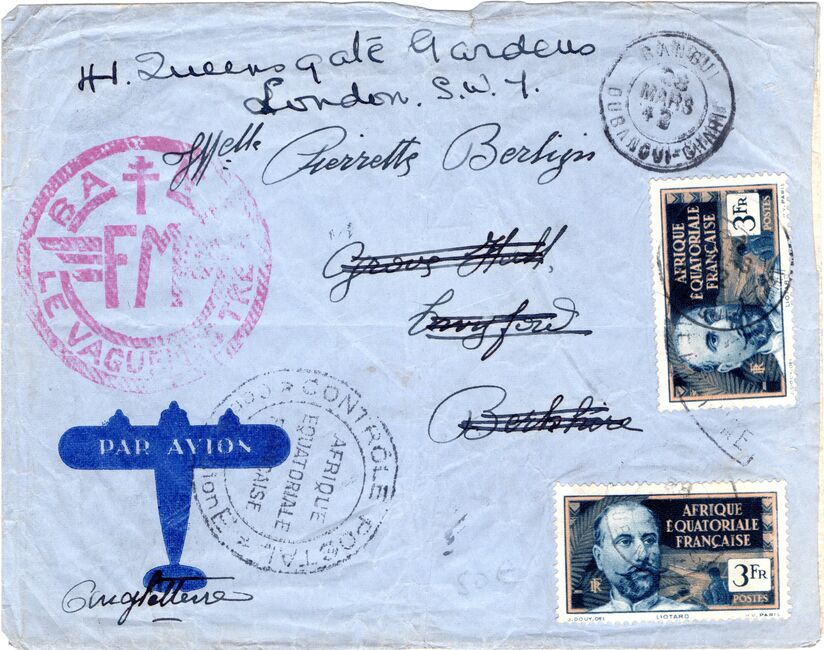 41. Queensgate Gardens
London. S.W.7.
Melle Pierrette
Grove Hall,
Berkshire
BANGUI
28
MARS
42
OUBANGUI-CHARI
BA
FM
LE VAGUEMESTRE
3 FR
POSTES
AFRIQUE
ÉQUATORIALE
FRANÇAISE
RF
LIOTARD
PAR AVION
CONTRÔLE POSTAL
AFRIQUE
EQUATORIALE
Angleterre
AFRIQUE
ÉQUATORIALE
FRANÇAISE
RF
3 FR
POSTES
J. DOUY. DEL
LIOTARD
PARIS